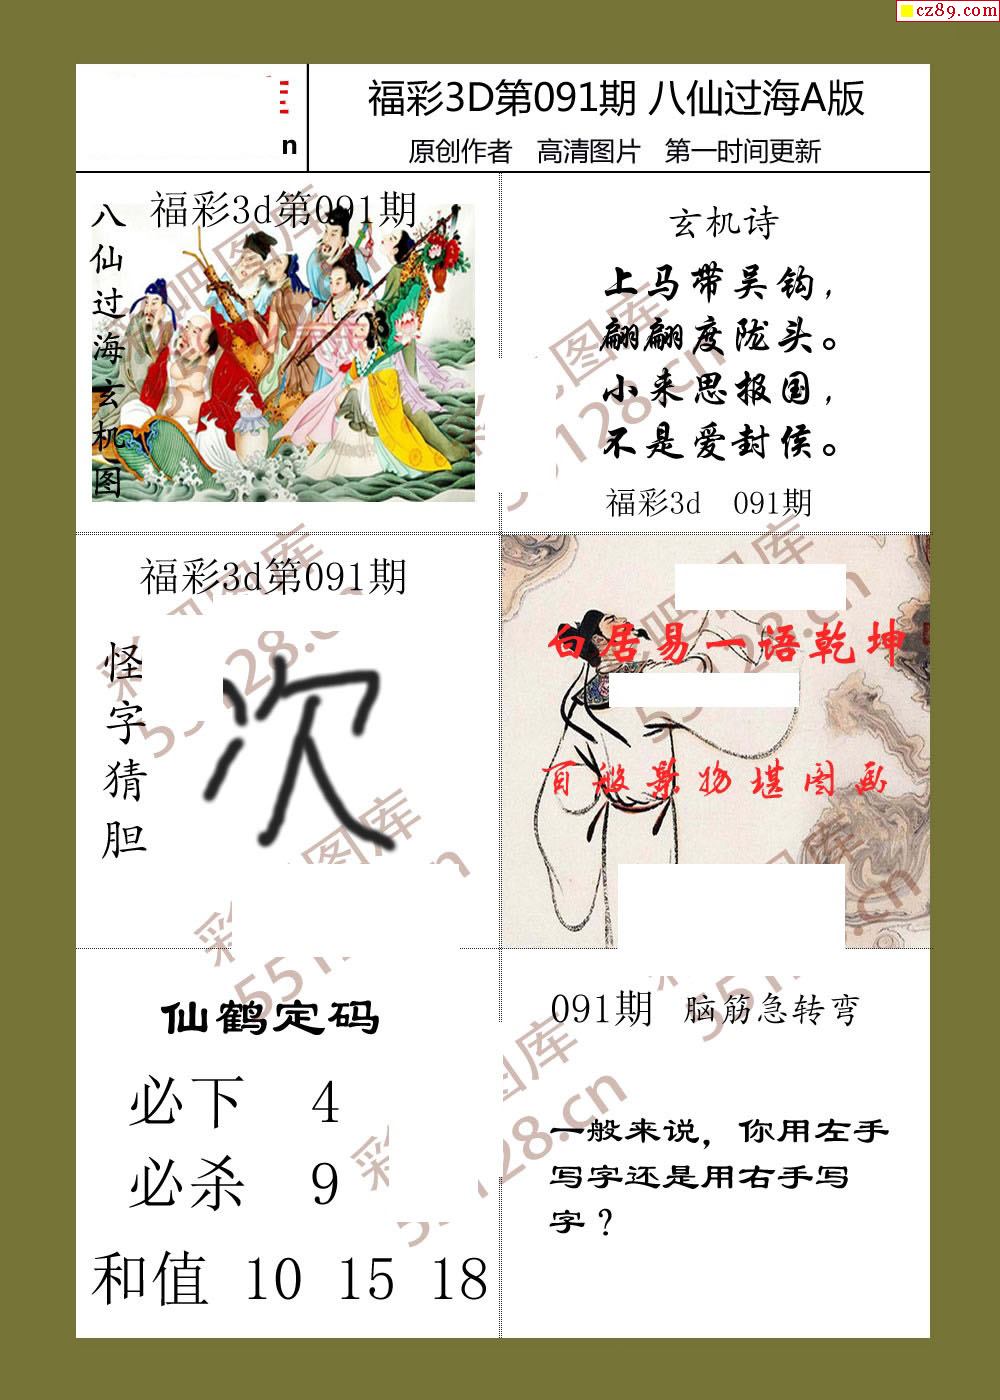 cz89.com
n
福彩3D第091期 八仙过海A版
原创作者 高清图片 第一时间更新
福彩3d第091期
八仙过海玄机图
玄机诗
上马带吴钩，
翩翩度陇头。
小来思报国，
不是爱封侯。
福彩3d 091期
福彩3d第091期
怪字猜胆
白居易一语乾坤
百般景物堪图画
仙鹤定码
必下 4
必杀 9
和值 10 15 18
091期 脑筋急转弯
一般来说，你用左手
写字还是用右手写
字？